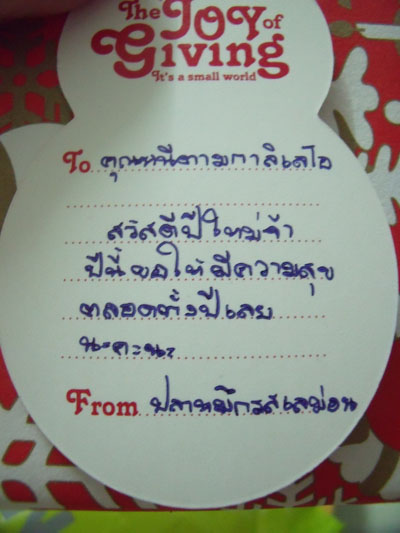 The JOY of
Giving
It's a small world
To คุณหนีตามกาลิเลโอ
สวัสดีปีใหม่จ้า
ปีนี้ขอให้มีความสุข
ตลอดทั้งปีเลย
นะคะนะ
From ปลาหมึกรสเลม่อน